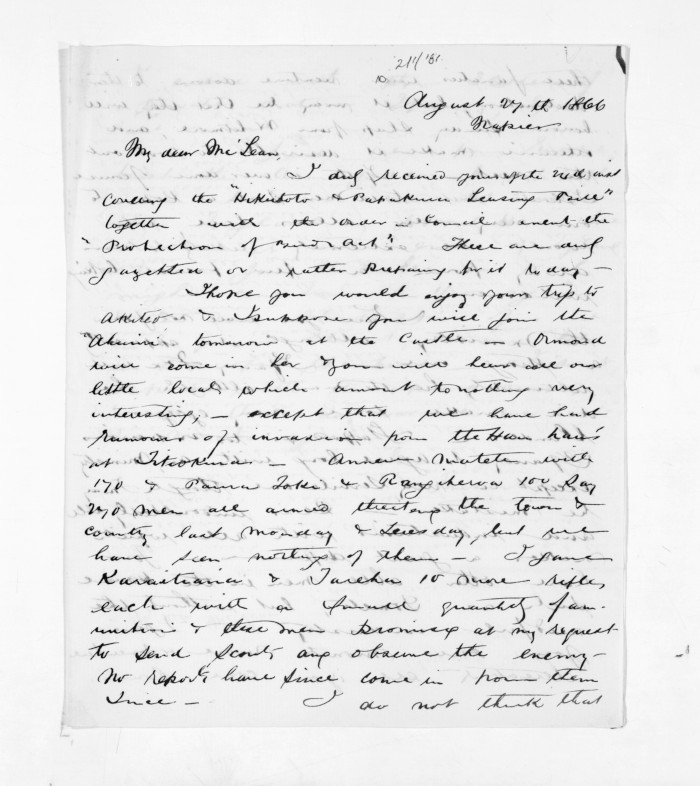 211/'61
10
August 27th 1866
Napier
My dear McLean,
I duly received yours of the 22d inst
covering the "Hikutoto & Papakura Leasing
together with the order in Council anent the
"Protection of Act". These are duly
gazetted, or rather preparing for it, to day —
I hope you would enjoy your trip to
Akitio & I suppose you will join the
"Ahuriri" tomorrow at the Castle — Ormond
will come in her & you will hear all our
little locals which amount to nothing very
interesting, — except that we have had
rumours of invasion from the Hau hau's
at Titiokura — Anaru Matete with
170 & Paora Toki & Rangihiroa 100 Say
270 men all armed threatened the town &
country last Monday & Tuesday, but we
have seen nothing of them — I gave
Karaitiana & Tareha 10 more rifles
each with a small quantity of am-
unition & these men promised at my request
to send Scouts and observe the enemy —
No reports have since come in from them
Since — I do not think that